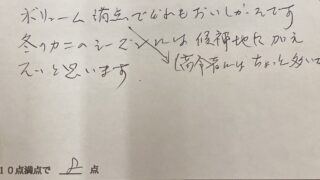 ボリューム満点でどれもおいしかったです
冬のカニのシーズンには候補地に加え
たいと思います
(高令者にはちょっと多いで
10点満点で 8 点